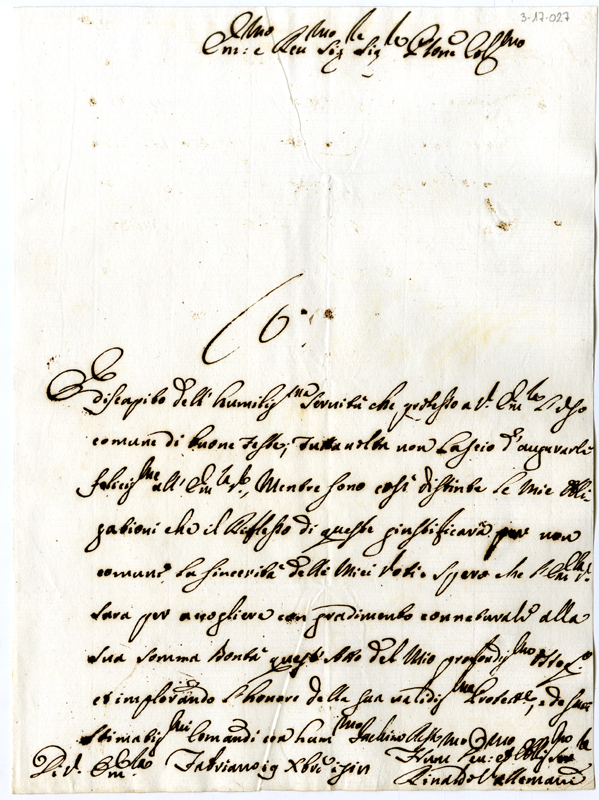 3-17-027
Em:o e Reu.mo Sig.le Sig.le Prone Col.mo
(6
È discapito dell' humiliss.ma Servitù che professo a V. Em.za l'uso
comune di buone feste; tuttavolta non lascio d'augurarle
feliciss.me all' Em.za V., Mentre sono così distinte le mie obli
gationi che il Riflesso di queste giustificarà per non
comune la sincerità delli Miei Voti e spero che l'Em.za V.
sarà per accogliere con gradimento connaturale alla
sua somma Bontà quest' Atto del Mio profondiss.mo
et implorando l'honore della sua validiss.ma Protett.e, e de suoi
stimatiss.mi Comandi con hum.mo Inchino
Di V. Em.za Fabriano
Humil.mo Deu. et Obl.mo Ser.
Rinaldo